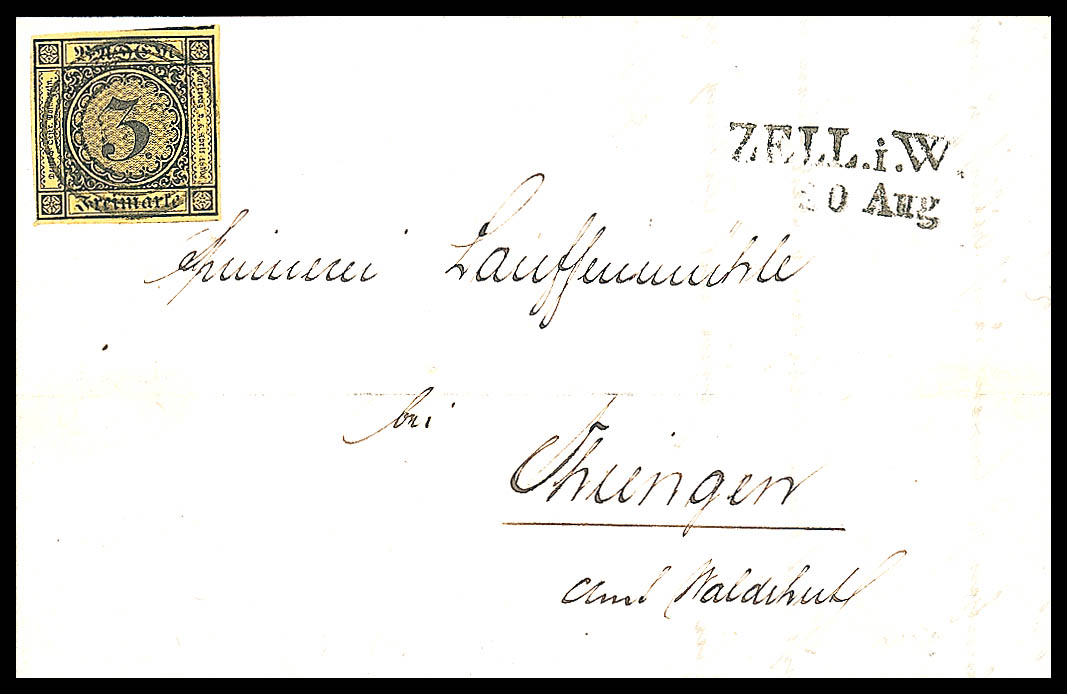 BADEN
3
Freimarke
ZELL.i.W.
10 Aug
Spinnerei Lauffenmühle
bei
Thiengen
Amt Waldshut